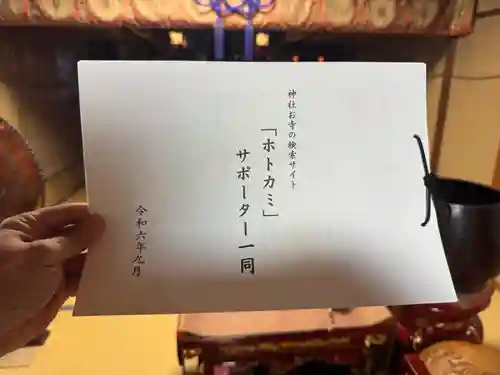 神社お寺の検索サイト
「ホトカミ」
サポーター一同
令和六年九月